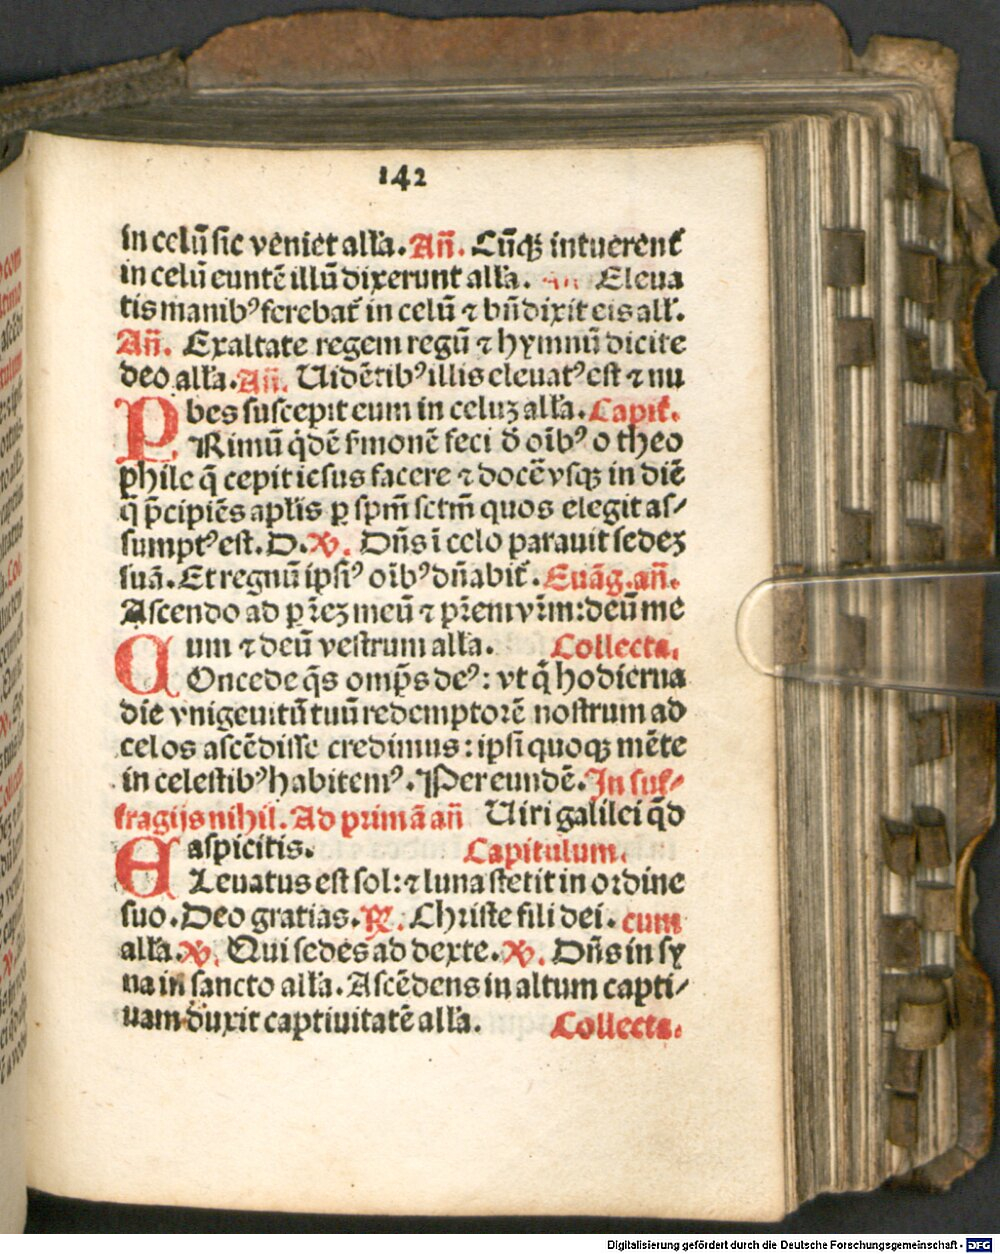 142
in celū sic veniet alľa. Añ. Cūqȝ intuerent̃
in celū euntē illū dixerunt alľa. Añ Eleua
tis manibꝰ ferebat̃ in celū ⁊ bñdixit eis alľ.
Añ. Exaltate regem regū ⁊ hymnū dicite
deo alľa. Añ. Uidētibꝰ illis eleuatꝰ est ⁊ nu
bes suscepit eum in celuȝ alľa. Capit̃.
PRimū q̇dē ẜmonē feci d̄ oībꝰ o theo
phile q̄ cepit iesus facere ⁊ docē vsqȝ in diē
q̄ p̄cipiēs apľis ꝑ spm̄ sctm̄ quos elegit as⸗
sumptꝰ est. D. ꝟ. Dñs ī celo parauit sedeȝ
suā. Et regnū ipsiꝰ oībꝰ dñabit̃. Euāg. añ.
Ascendo ad pr̄eȝ meū ⁊ pr̄em vr̄m: deū me
um ⁊ deū vestrum alľa. Collecta.
COncede q̄s omp̄s deꝰ: vt q̄ hodierna
die vnigenitū tuū redemptorē nostrum ad
celos ascēdisse credimus: ipsi quoqȝ mēte
in celestibꝰ habitemꝰ. Per eundē. In suf⸗
fragijs nihil. Ad primā añ Uiri galilei q̄d
aspicitis. Capitulum.
ELeuatus est sol: ⁊ luna stetit in ordine
suo. Deo gratias. ℞. Christe fili dei. cum
alľa. ꝟ. Qui sedes ad dexte. ꝟ. Dñs in sy
na in sancto alľa. Ascēdens in altum capti⸗
uam duxit captiuitatē alľa. Collecta.
Digitalisierung gefördert durch die Deutsche Forschungsgemeinschaft - DFG